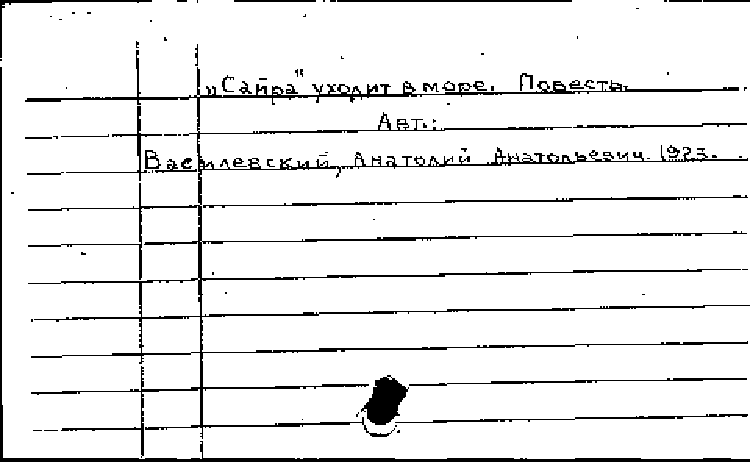 „Сайра" уходит в море. Повесть.
Авт.:
Василевский, Анатолий Анатольевич. 1923.